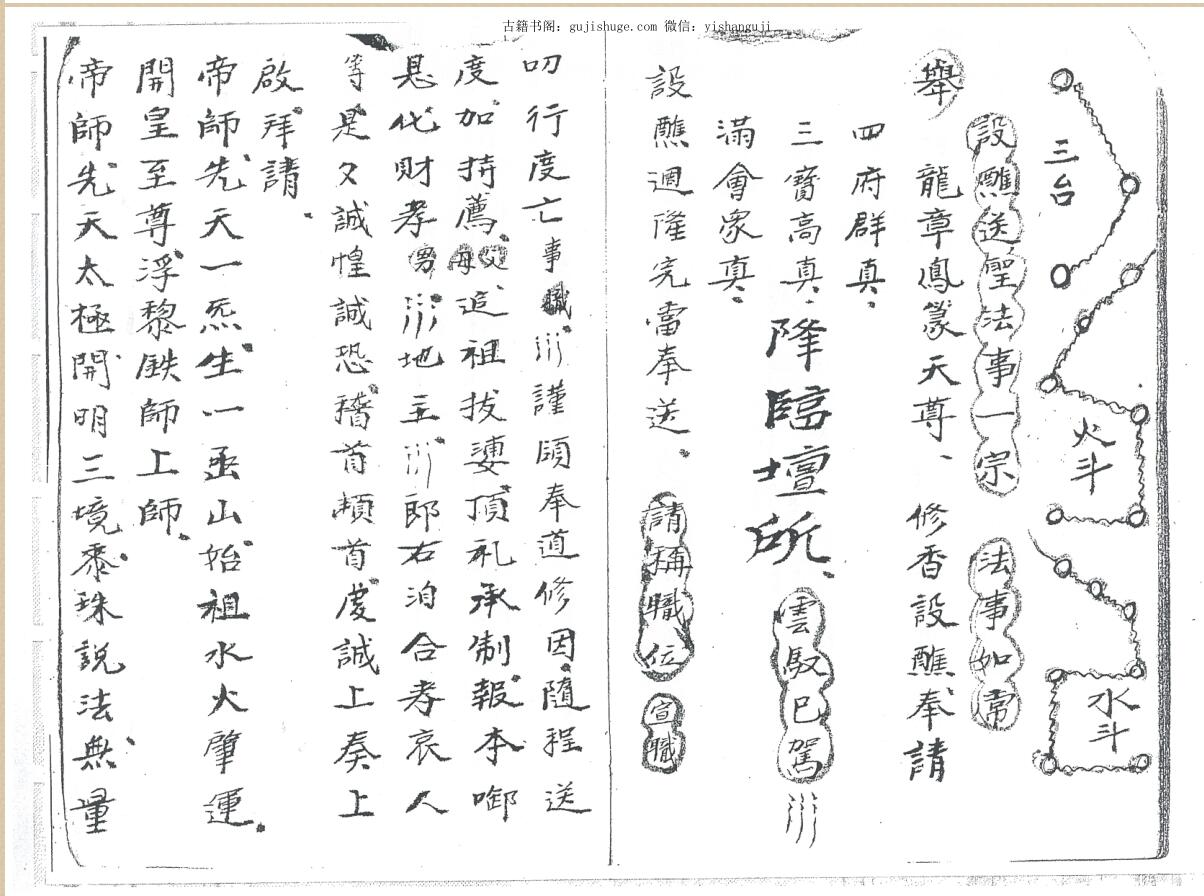 古籍书阁：gujishuge.com 微信：yishanguji
三台
火斗
水斗
設醮送聖法事一宗 法事如常
舉 龍章鳳篆天尊、 修香設醮奉請
四府群真、
三寶高真、降臨壇所、雲馭已駕
滿會衆真、
設醮週隆完當奉送、 請稱職位 宣職
叨行度亡事職 謹頋奉道修因隨程送
度加持薦父母追祖拔婆頂礼承制報本啣
恳代財孝男 地主 郎右洎合孝哀人
等是又誠惶誠恐稽首頓首虔誠上奏上
啟拜請
帝師先天一炁生一 山始祖水火肇運
開皇至尊浮黎鉄師上師
帝師先天太極開明三境黍珠説法無量